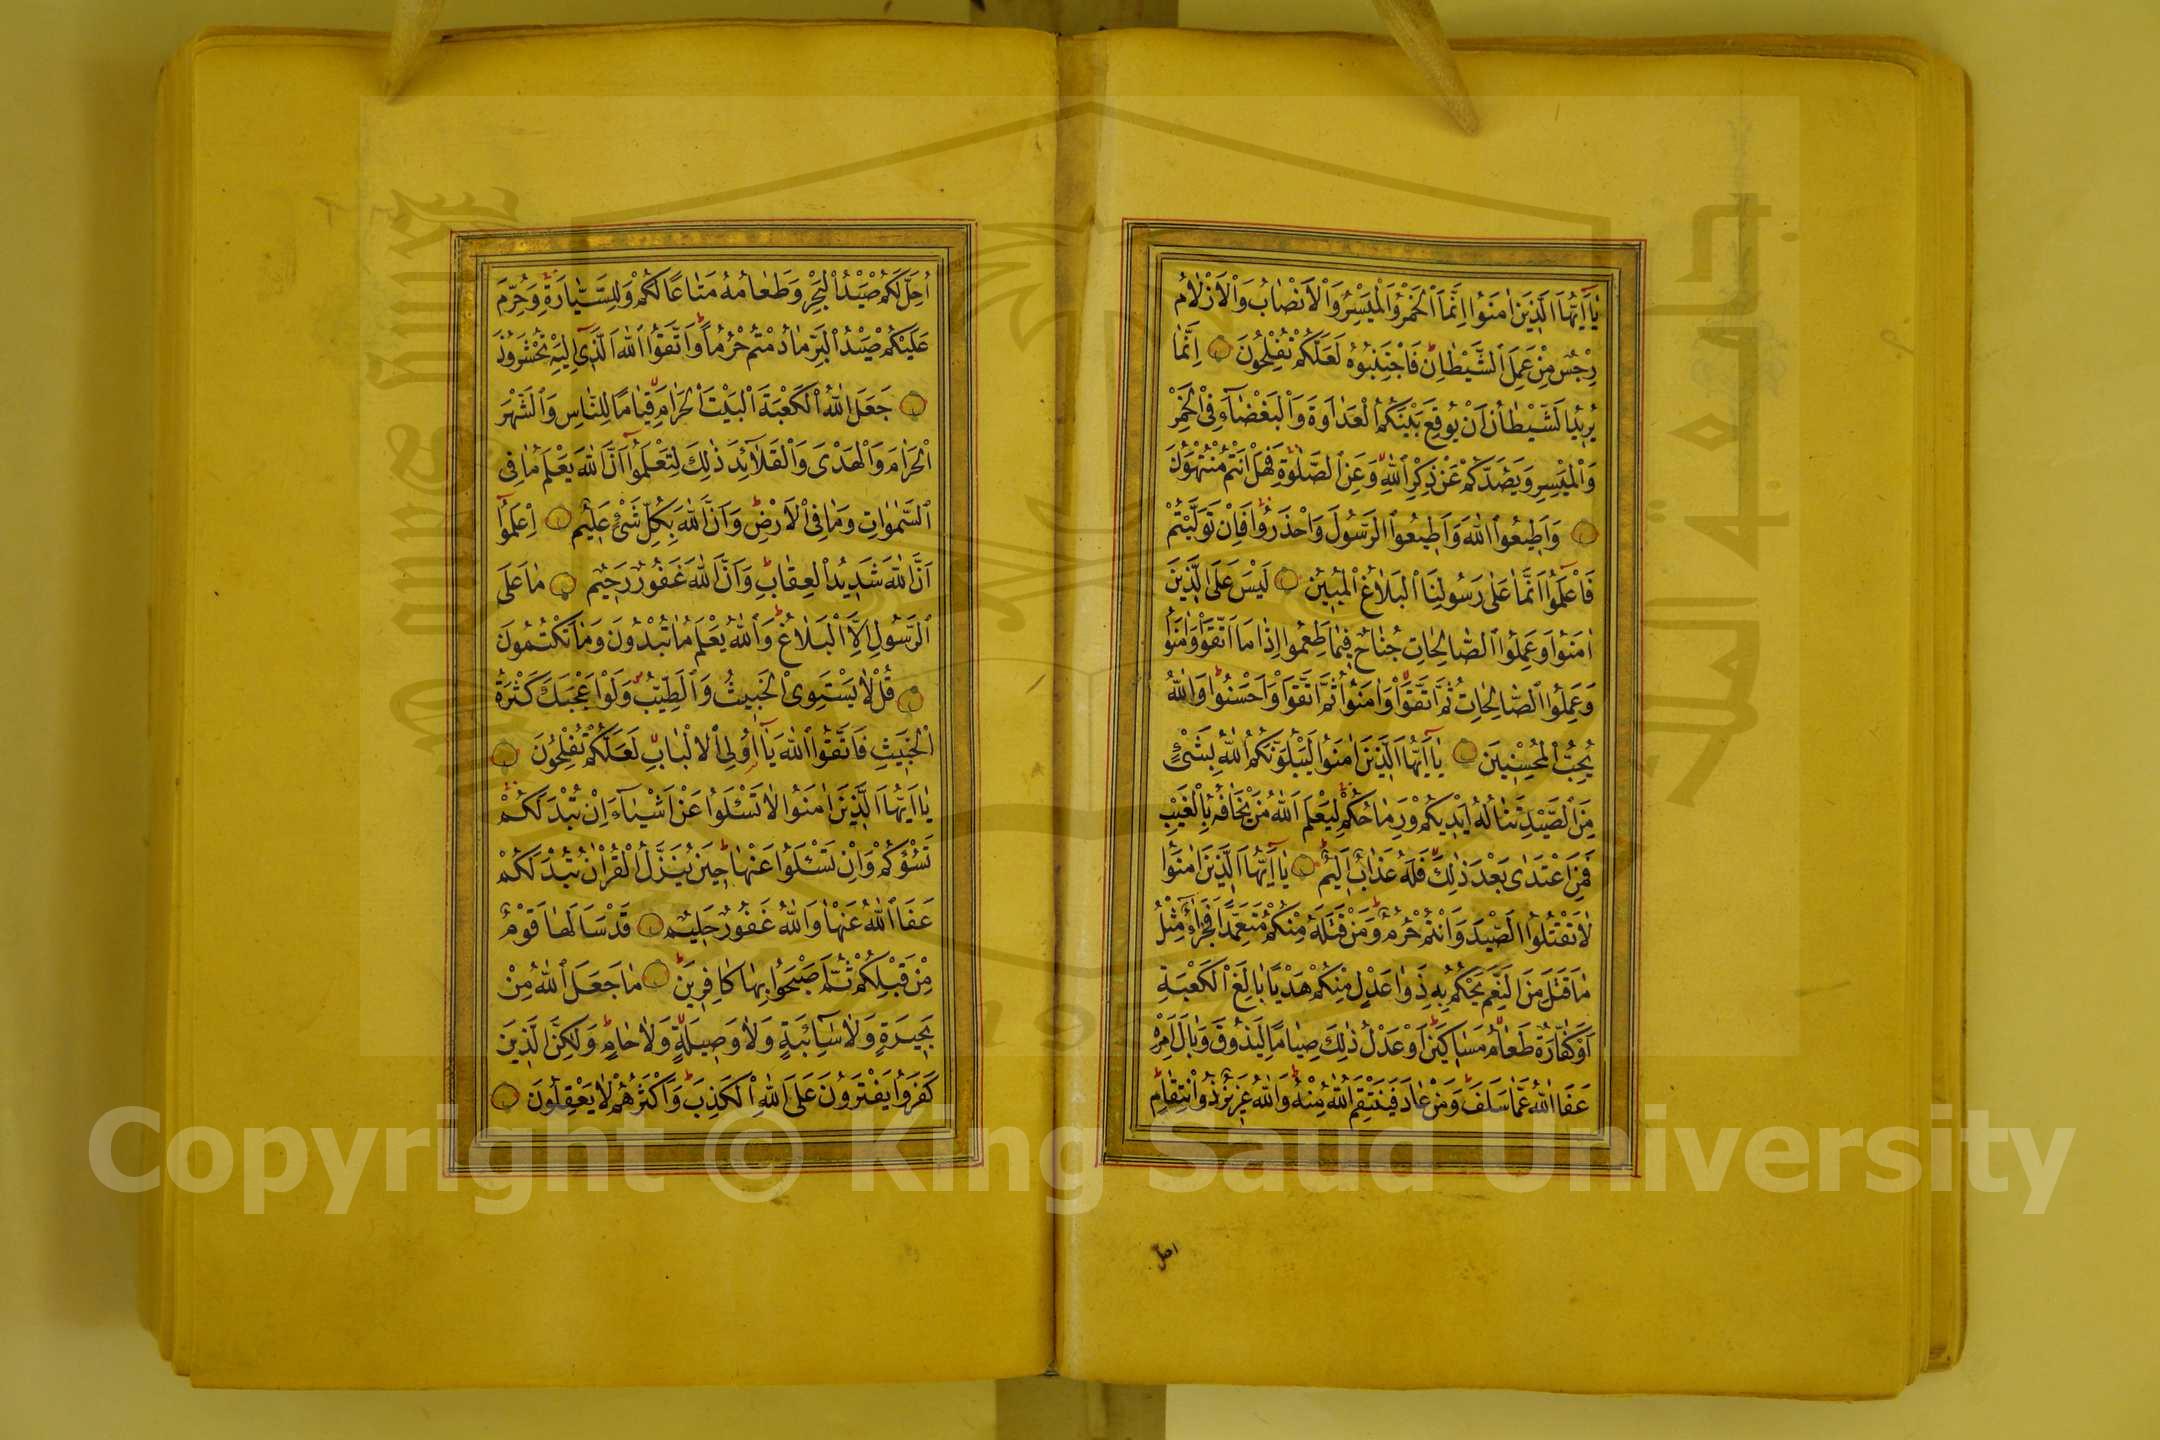 يَا أَيُّهَا الَّذِينَ اٰمَنُوا اِنَّمَا الْخَمْرُ وَالْمَيْسِرُ وَالْاَنْصَابُ وَالْاَزْلَامُ
رِجْسٌ مِنْ عَمَلِ الشَّيْطَانِ فَاجْتَنِبُوهُ لَعَلَّكُمْ تُفْلِحُونَ اِنَّمَا
يُرِيدُ الشَّيْطَانُ اَنْ يُوقِعَ بَيْنَكُمُ الْعَدَاوَةَ وَالْبَغْضَاءَ فِى الْخَمْرِ
وَالْمَيْسِرِ وَيَصُدَّكُمْ عَنْ ذِكْرِ اللهِ وَعَنِ الصَّلٰوةِ فَهَلْ اَنْتُمْ مُنْتَهُونَ
وَاَطِيعُوا اللهَ وَاَطِيعُوا الرَّسُولَ وَاحْذَرُوا فَاِنْ تَوَلَّيْتُمْ
فَاعْلَمُوا اَنَّمَا عَلٰى رَسُولِنَا الْبَلَاغُ الْمُبِينُ لَيْسَ عَلَى الَّذِينَ
اٰمَنُوا وَعَمِلُوا الصَّالِحَاتِ جُنَاحٌ فِيمَا طَعِمُوا اِذَا مَا اتَّقَوْا وَاٰمَنُوا
وَعَمِلُوا الصَّالِحَاتِ ثُمَّ اتَّقَوْا وَاٰمَنُوا ثُمَّ اتَّقَوْا وَاَحْسَنُوا وَاللهُ
يُحِبُّ الْمُحْسِنِينَ يَا اَيُّهَا الَّذِينَ اٰمَنُوا لَيَبْلُوَنَّكُمُ اللهُ بِشَىْءٍ
مِنَ الصَّيْدِ تَنَالُهُ اَيْدِيكُمْ وَرِمَاحُكُمْ لِيَعْلَمَ اللهُ مَنْ يَخَافُهُ بِالْغَيْبِ
فَمَنِ اعْتَدٰى بَعْدَ ذٰلِكَ فَلَهُ عَذَابٌ اَلِيمٌ يَا اَيُّهَا الَّذِينَ اٰمَنُوا
لَا تَقْتُلُوا الصَّيْدَ وَاَنْتُمْ حُرُمٌ وَمَنْ قَتَلَهُ مِنْكُمْ مُتَعَمِّدًا فَجَزَاءٌ مِثْلُ
مَا قَتَلَ مِنَ النَّعَمِ يَحْكُمُ بِهِ ذَوَا عَدْلٍ مِنْكُمْ هَدْيًا بَالِغَ الْكَعْبَةِ
اَوْ كَفَّارَةٌ طَعَامُ مَسَاكِينَ اَوْ عَدْلُ ذٰلِكَ صِيَامًا لِيَذُوقَ وَبَالَ اَمْرِهِ
عَفَا اللهُ عَمَّا سَلَفَ وَمَنْ عَادَ فَيَنْتَقِمُ اللهُ مِنْهُ وَاللهُ عَزِيزٌ ذُو انْتِقَامٍ
احل
اُحِلَّ لَكُمْ صَيْدُ الْبَحْرِ وَطَعَامُهُ مَتَاعًا لَكُمْ وَلِلسَّيَّارَةِ وَحُرِّمَ
عَلَيْكُمْ صَيْدُ الْبَرِّ مَا دُمْتُمْ حُرُمًا وَاتَّقُوا اللهَ الَّذِى اِلَيْهِ تُحْشَرُونَ
جَعَلَ اللهُ الْكَعْبَةَ الْبَيْتَ الْحَرَامَ قِيَامًا لِلنَّاسِ وَالشَّهْرَ
الْحَرَامَ وَالْهَدْىَ وَالْقَلَائِدَ ذٰلِكَ لِتَعْلَمُوا اَنَّ اللهَ يَعْلَمُ مَا فِى
السَّمٰوَاتِ وَمَا فِى الْاَرْضِ وَاَنَّ اللهَ بِكُلِّ شَىْءٍ عَلِيمٌ اِعْلَمُوا
اَنَّ اللهَ شَدِيدُ الْعِقَابِ وَاَنَّ اللهَ غَفُورٌ رَحِيمٌ مَا عَلَى
الرَّسُولِ اِلَّا الْبَلَاغُ وَاللهُ يَعْلَمُ مَا تُبْدُونَ وَمَا تَكْتُمُونَ
قُلْ لَا يَسْتَوِى الْخَبِيثُ وَالطَّيِّبُ وَلَوْ اَعْجَبَكَ كَثْرَةُ
الْخَبِيثِ فَاتَّقُوا اللهَ يَا اُولِى الْاَلْبَابِ لَعَلَّكُمْ تُفْلِحُونَ
يَا اَيُّهَا الَّذِينَ اٰمَنُوا لَا تَسْئَلُوا عَنْ اَشْيَاءَ اِنْ تُبْدَ لَكُمْ
تَسُؤْكُمْ وَاِنْ تَسْئَلُوا عَنْهَا حِينَ يُنَزَّلُ الْقُرْاٰنُ تُبْدَ لَكُمْ
عَفَا اللهُ عَنْهَا وَاللهُ غَفُورٌ حَلِيمٌ قَدْ سَاَلَهَا قَوْمٌ
مِنْ قَبْلِكُمْ ثُمَّ اَصْبَحُوا بِهَا كَافِرِينَ مَا جَعَلَ اللهُ مِنْ
بَحِيرَةٍ وَلَا سَائِبَةٍ وَلَا وَصِيلَةٍ وَلَا حَامٍ وَلٰكِنَّ الَّذِينَ
كَفَرُوا يَفْتَرُونَ عَلَى اللهِ الْكَذِبَ وَاَكْثَرُهُمْ لَا يَعْقِلُونَ
Copyright © King Saud University